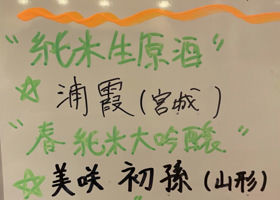 "純米生原酒"
☆ 浦霞(宮城)
"春 純米大吟醸"
☆ 美咲 初孫(山形)